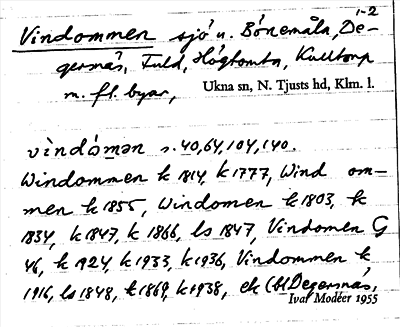 1-2
Vindommen sjö v. Bönemåla, De-
gersnäs, Fuld, Högtomta, Kulltorp
m. fl. byar, Ukna sn, N. Tjusts hd, Klm. l.
s. 40, 64, 104, 140.
Windommen k 1814, k 1777, Wind om-
men k 1855, Windomen k 1803, k
1834, k 1847, k 1866, ls 1847, Vindomen G
46, k 1924, k 1933, k 1936, Vindommen k
1916, ls 1848, k 1869, k 1938, ek (bl Degersnäs,
Ivar Modéer 1955